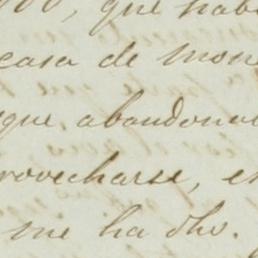 que hab
casa de mone
que abandona
rovecharse, e
me ha dho.